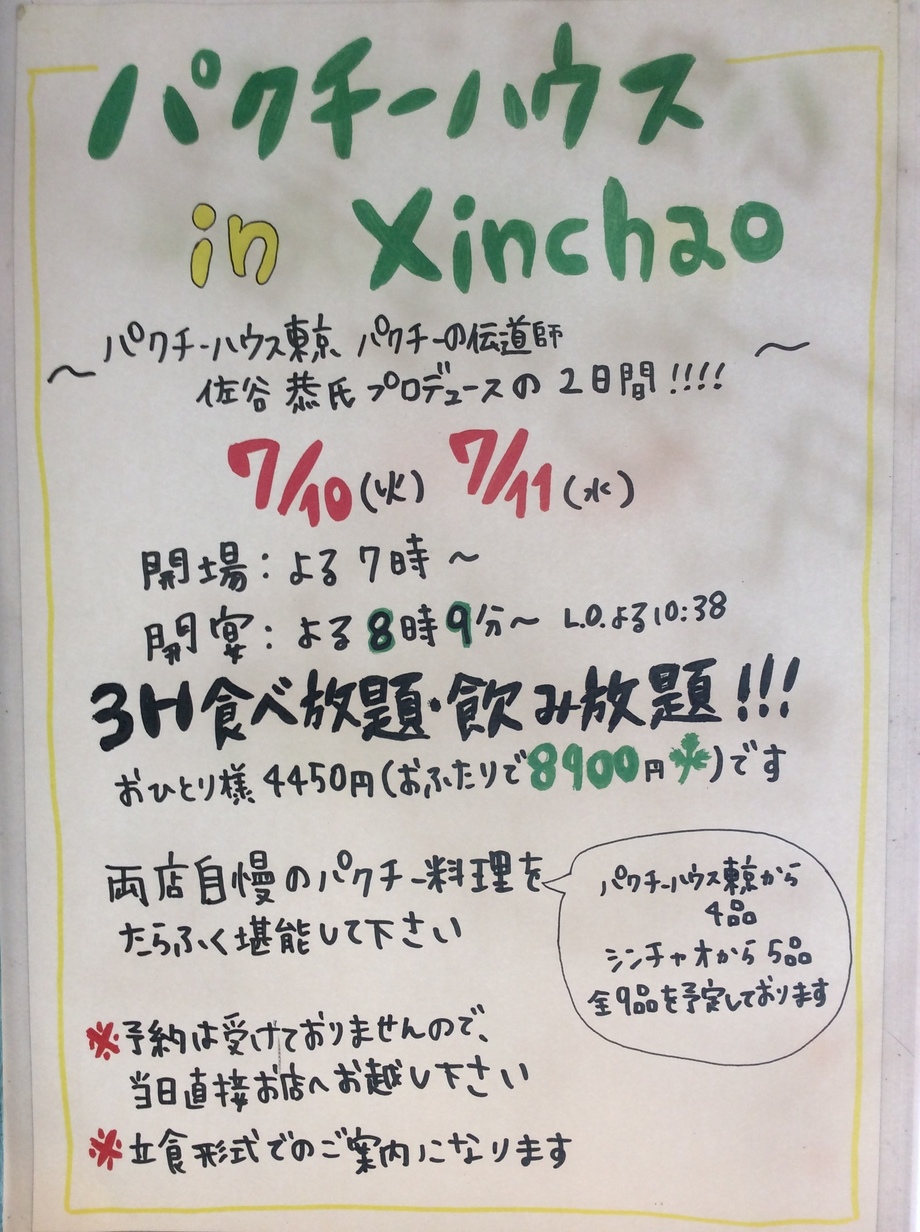 パクチーハウス
in Xinchao
～パクチーハウス東京 パクチーの伝道師
佐谷 恭氏 プロデュースの 2日間!!!!～
7/10(火) 7/11(水)
開場：よる7時～
開宴：よる8時9分～ L.O.よる10:38
3H食べ放題・飲み放題!!!
おひとり様 4450円(おふたりで8900円)です
両店自慢のパクチー料理を
たらふく堪能して下さい
パクチーハウス東京から
4品
シンチャオから 5品
全9品を予定しております
※予約は受けておりませんので、
当日直接お店へお越し下さい
※立食形式でのご案内になります